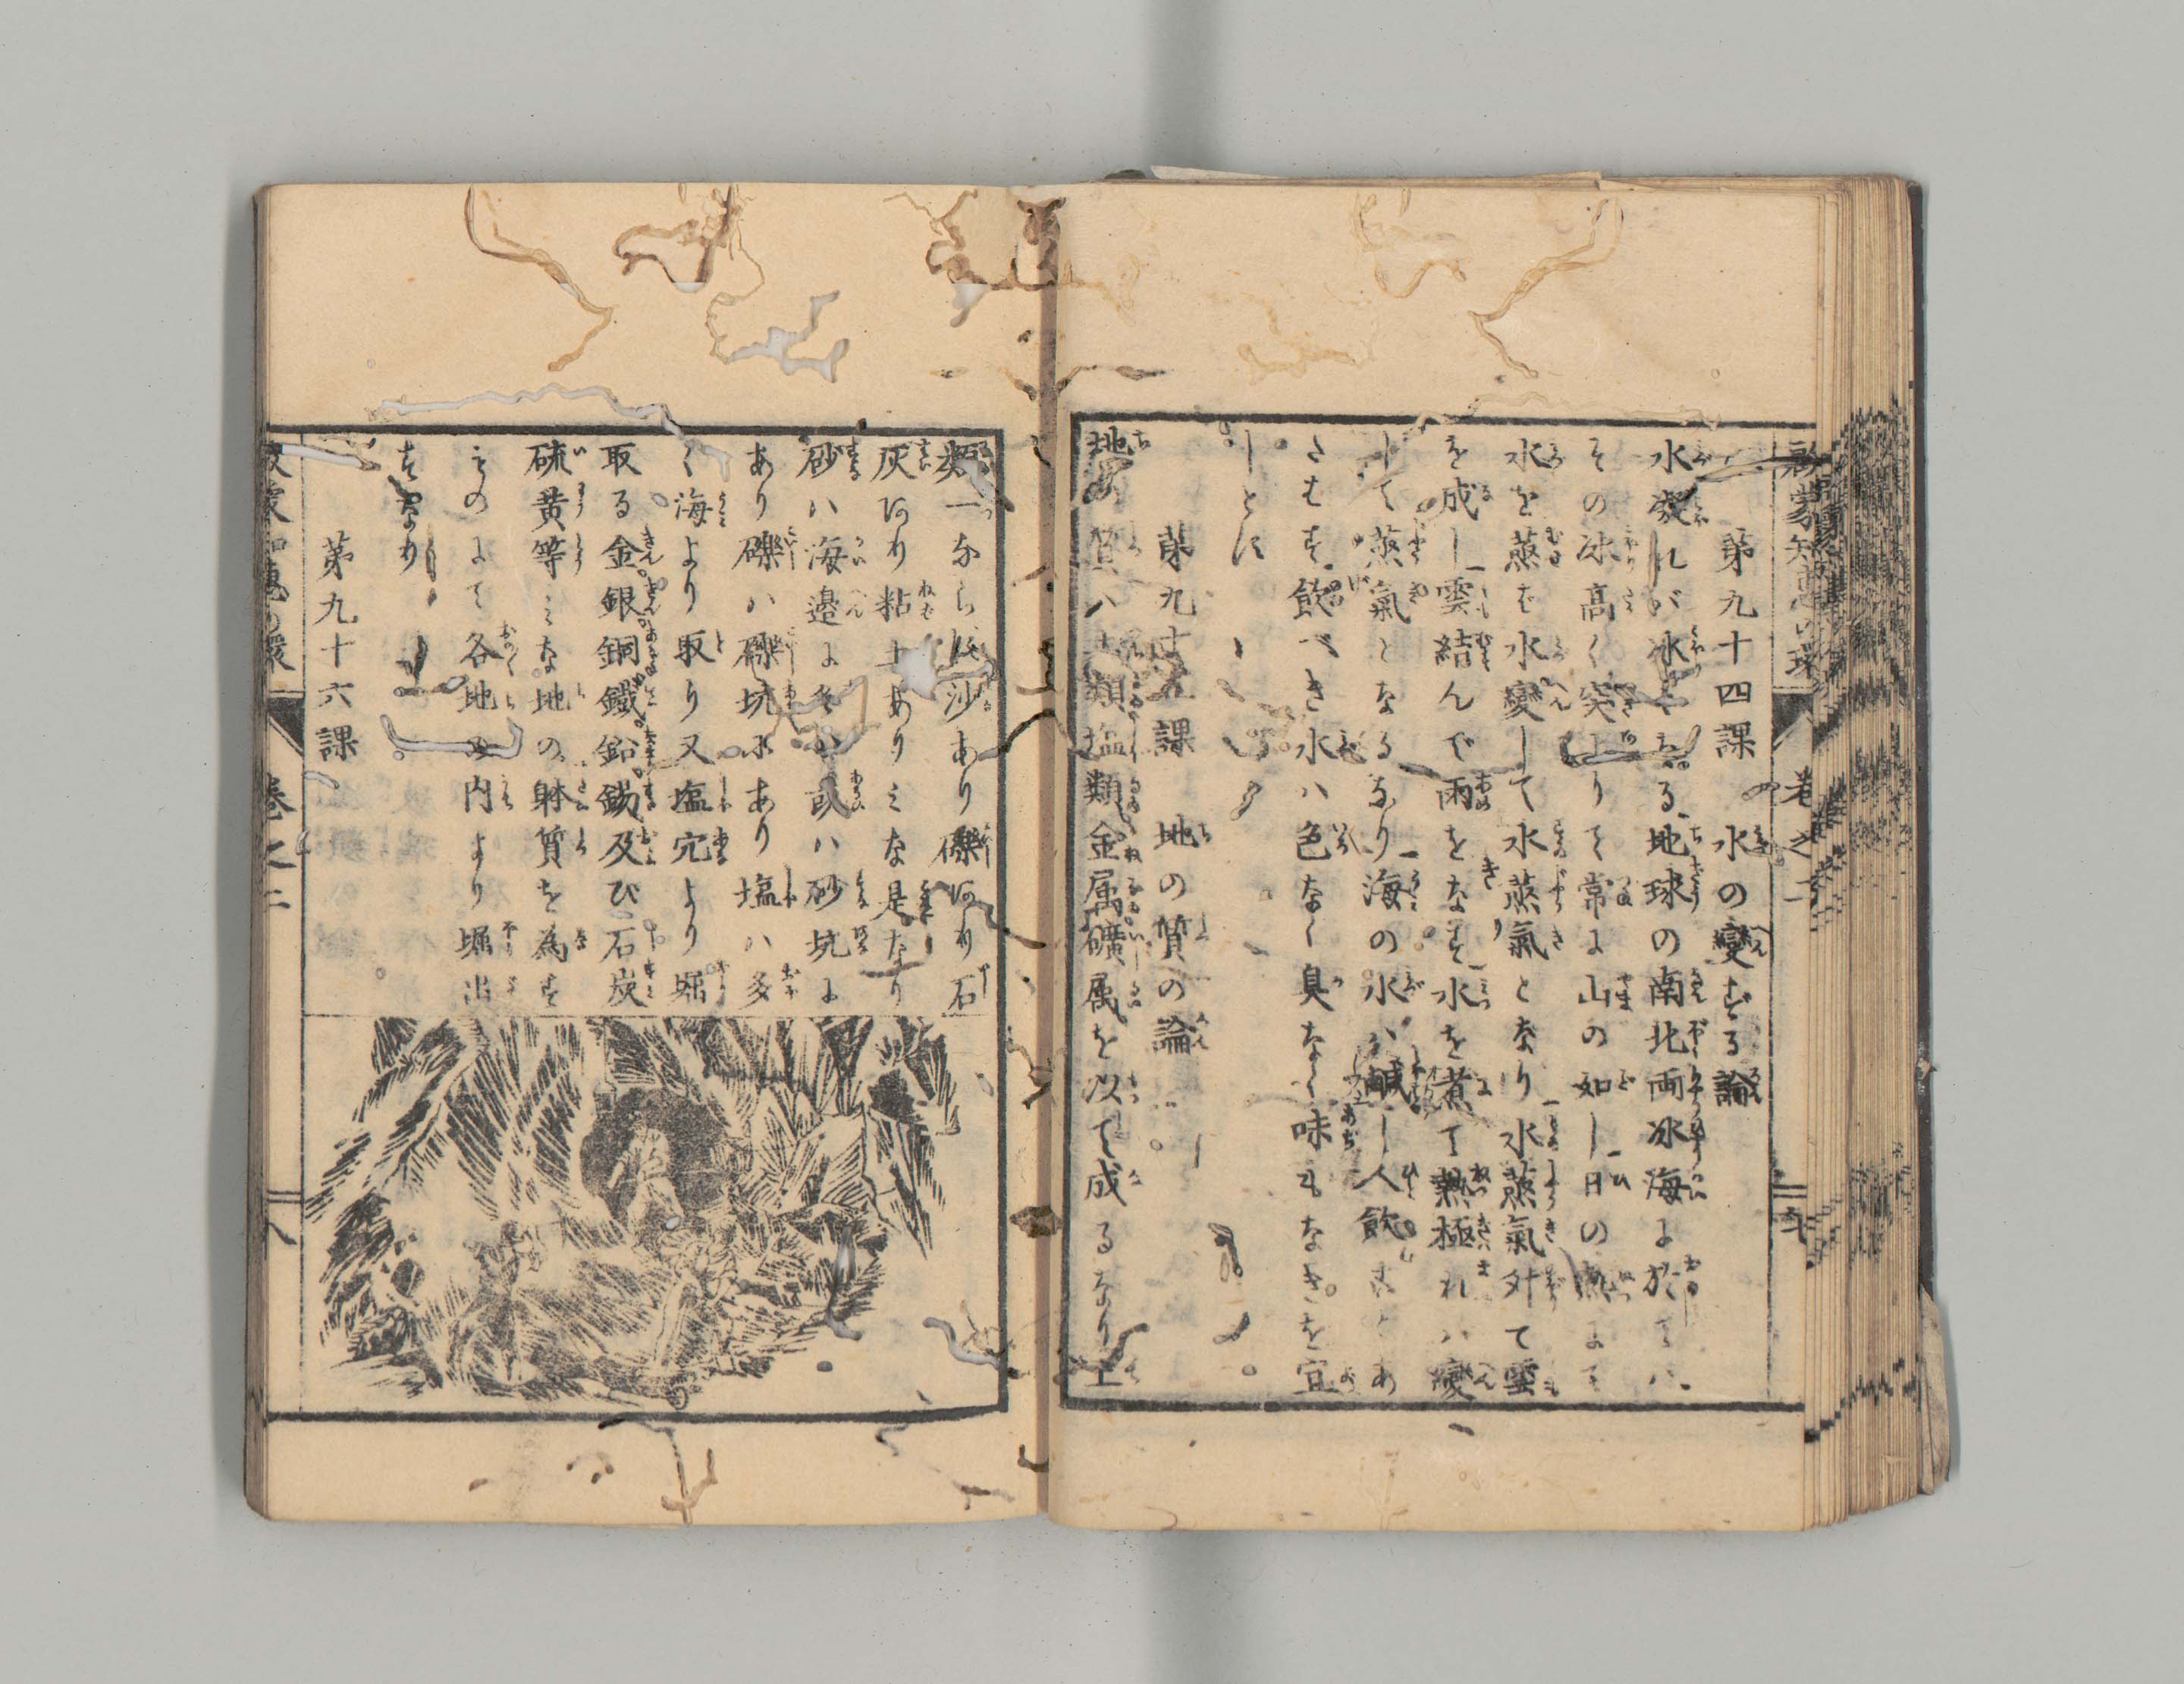 啓蒙知恵の環
巻之二
第九十四課　水の變ずる論
水凝れバ氷となる地球の南北両冰海に於てハ
その冰高く突よりて常に山の如し日の熱にて
水を蒸せバ水變して水蒸氣となり水蒸氣升て雲
を成し雲結んで雨をなす水を煮て熱極れハ變
して蒸氣となるなり海の水ハ鹹し人飲ことあ
たはず飲べき水ハ色なく臭なく味もなきを宜
しとす
第九十五課　地の質の論
地の質ハ土類石類塩類金属礦属を以て成るなり土
類一ならず沙あり礫あり石
灰あり粘土ありミな是なり
砂ハ海邉に多か或ハ砂坑に
あり礫ハ礫坑にあり塩ハ多
く海より取り又塩穴より堀
取る金銀銅鐵鉛錫及び石炭
硫黄等ミな地の躰質を為す
ものにて各地の内より堀出
すなり
第九十六課
巻之二
八